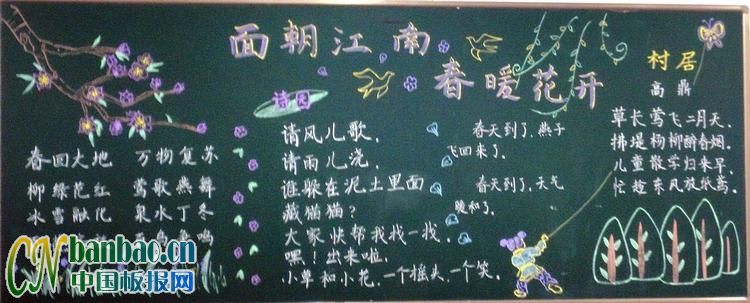 面朝江南
春暖花开
春回大地 万物复苏
柳绿花红 莺歌燕舞
冰雪融化 泉水丁冬
诗园
请风儿歌，
请雨儿浇，
谁躲在泥土里面
藏猫猫？
大家快帮我找一找，
嘿！出来啦，
小草和小花，一个摇头，一个笑。
春天到了，燕子
飞回来了。
春天到了，天气
暖和了。
村居
高鼎
草长莺飞二月天，
拂堤杨柳醉春烟。
儿童散学归来早，
忙趁东风放纸鸢。
CN banbao.cn
中国板报网